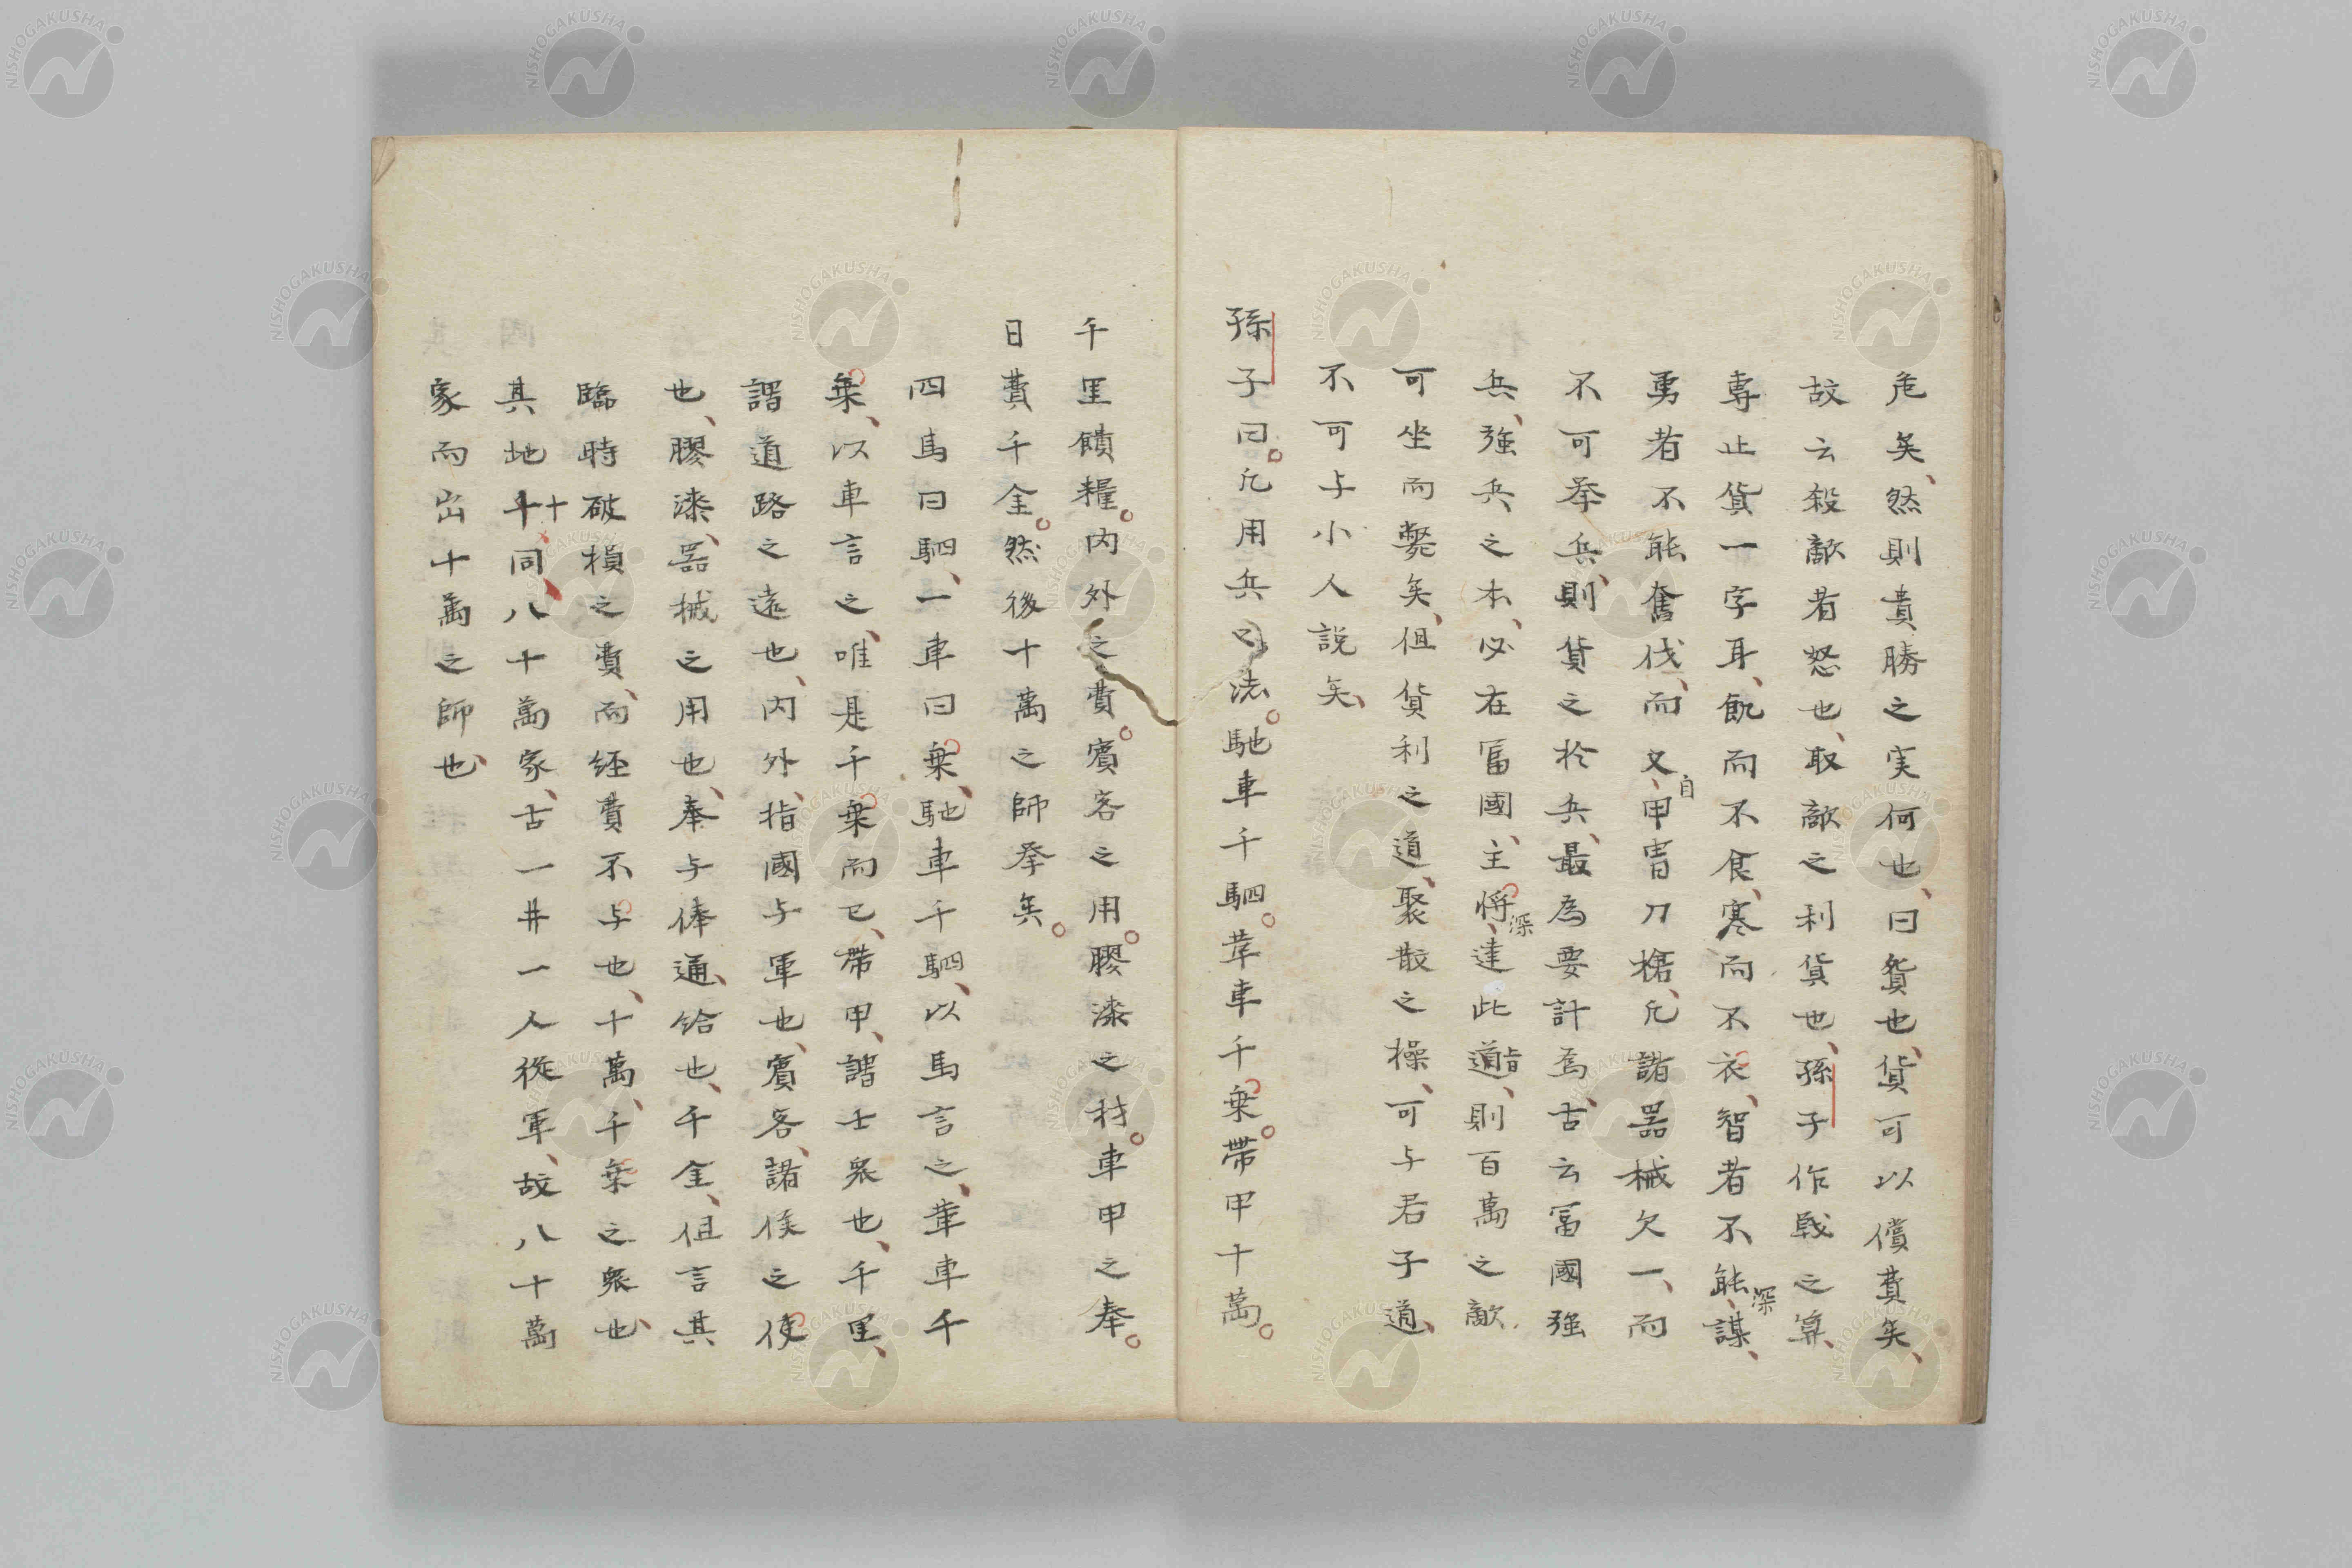 危矣、然則貴勝之実何也、曰貨也、貨可以償費矣、
故云殺敵者怒也、取敵之利貨也、孫子作戦之算、
專止貨一字耳、飢而不食、寒而不衣、智者不能深謀、
勇者不能奮伐、而又自甲冑刀楯、凡諸器械欠一、而
不可挙兵、則貨之於兵、最為要計焉、古云冨國強
兵、強兵之本、必在冨國、主将、深達此道旨、則百萬之敵
可坐而斃矣、但貨利之道、聚散之操、可与君子道、
不可与小人説矣、
孫子曰。凡用兵之法。馳車千駟。革車千乗。帶甲十萬。
千里饋糧。内外之費。賓客之用。膠漆之材。車甲之奉。
日費千金。然後十萬之師挙矣。
四馬曰駟、一車曰乗、馳車千駟、以馬言之、革車千
乗、以車言之、唯是千乗而已、帶甲、謂士衆也、千里、
謂道路之遠也、内外、指國与軍也、賓客、諸侯之使
也、膠漆、器械之用也、奉与俸通、給也、千金、但言其
臨時破損之費、而経費不与也、十萬、千乗之衆也、
其地千十同、八十萬家、古一井一人從軍、故八十萬
家而出十萬之師也、
NISHOGAKUSHA